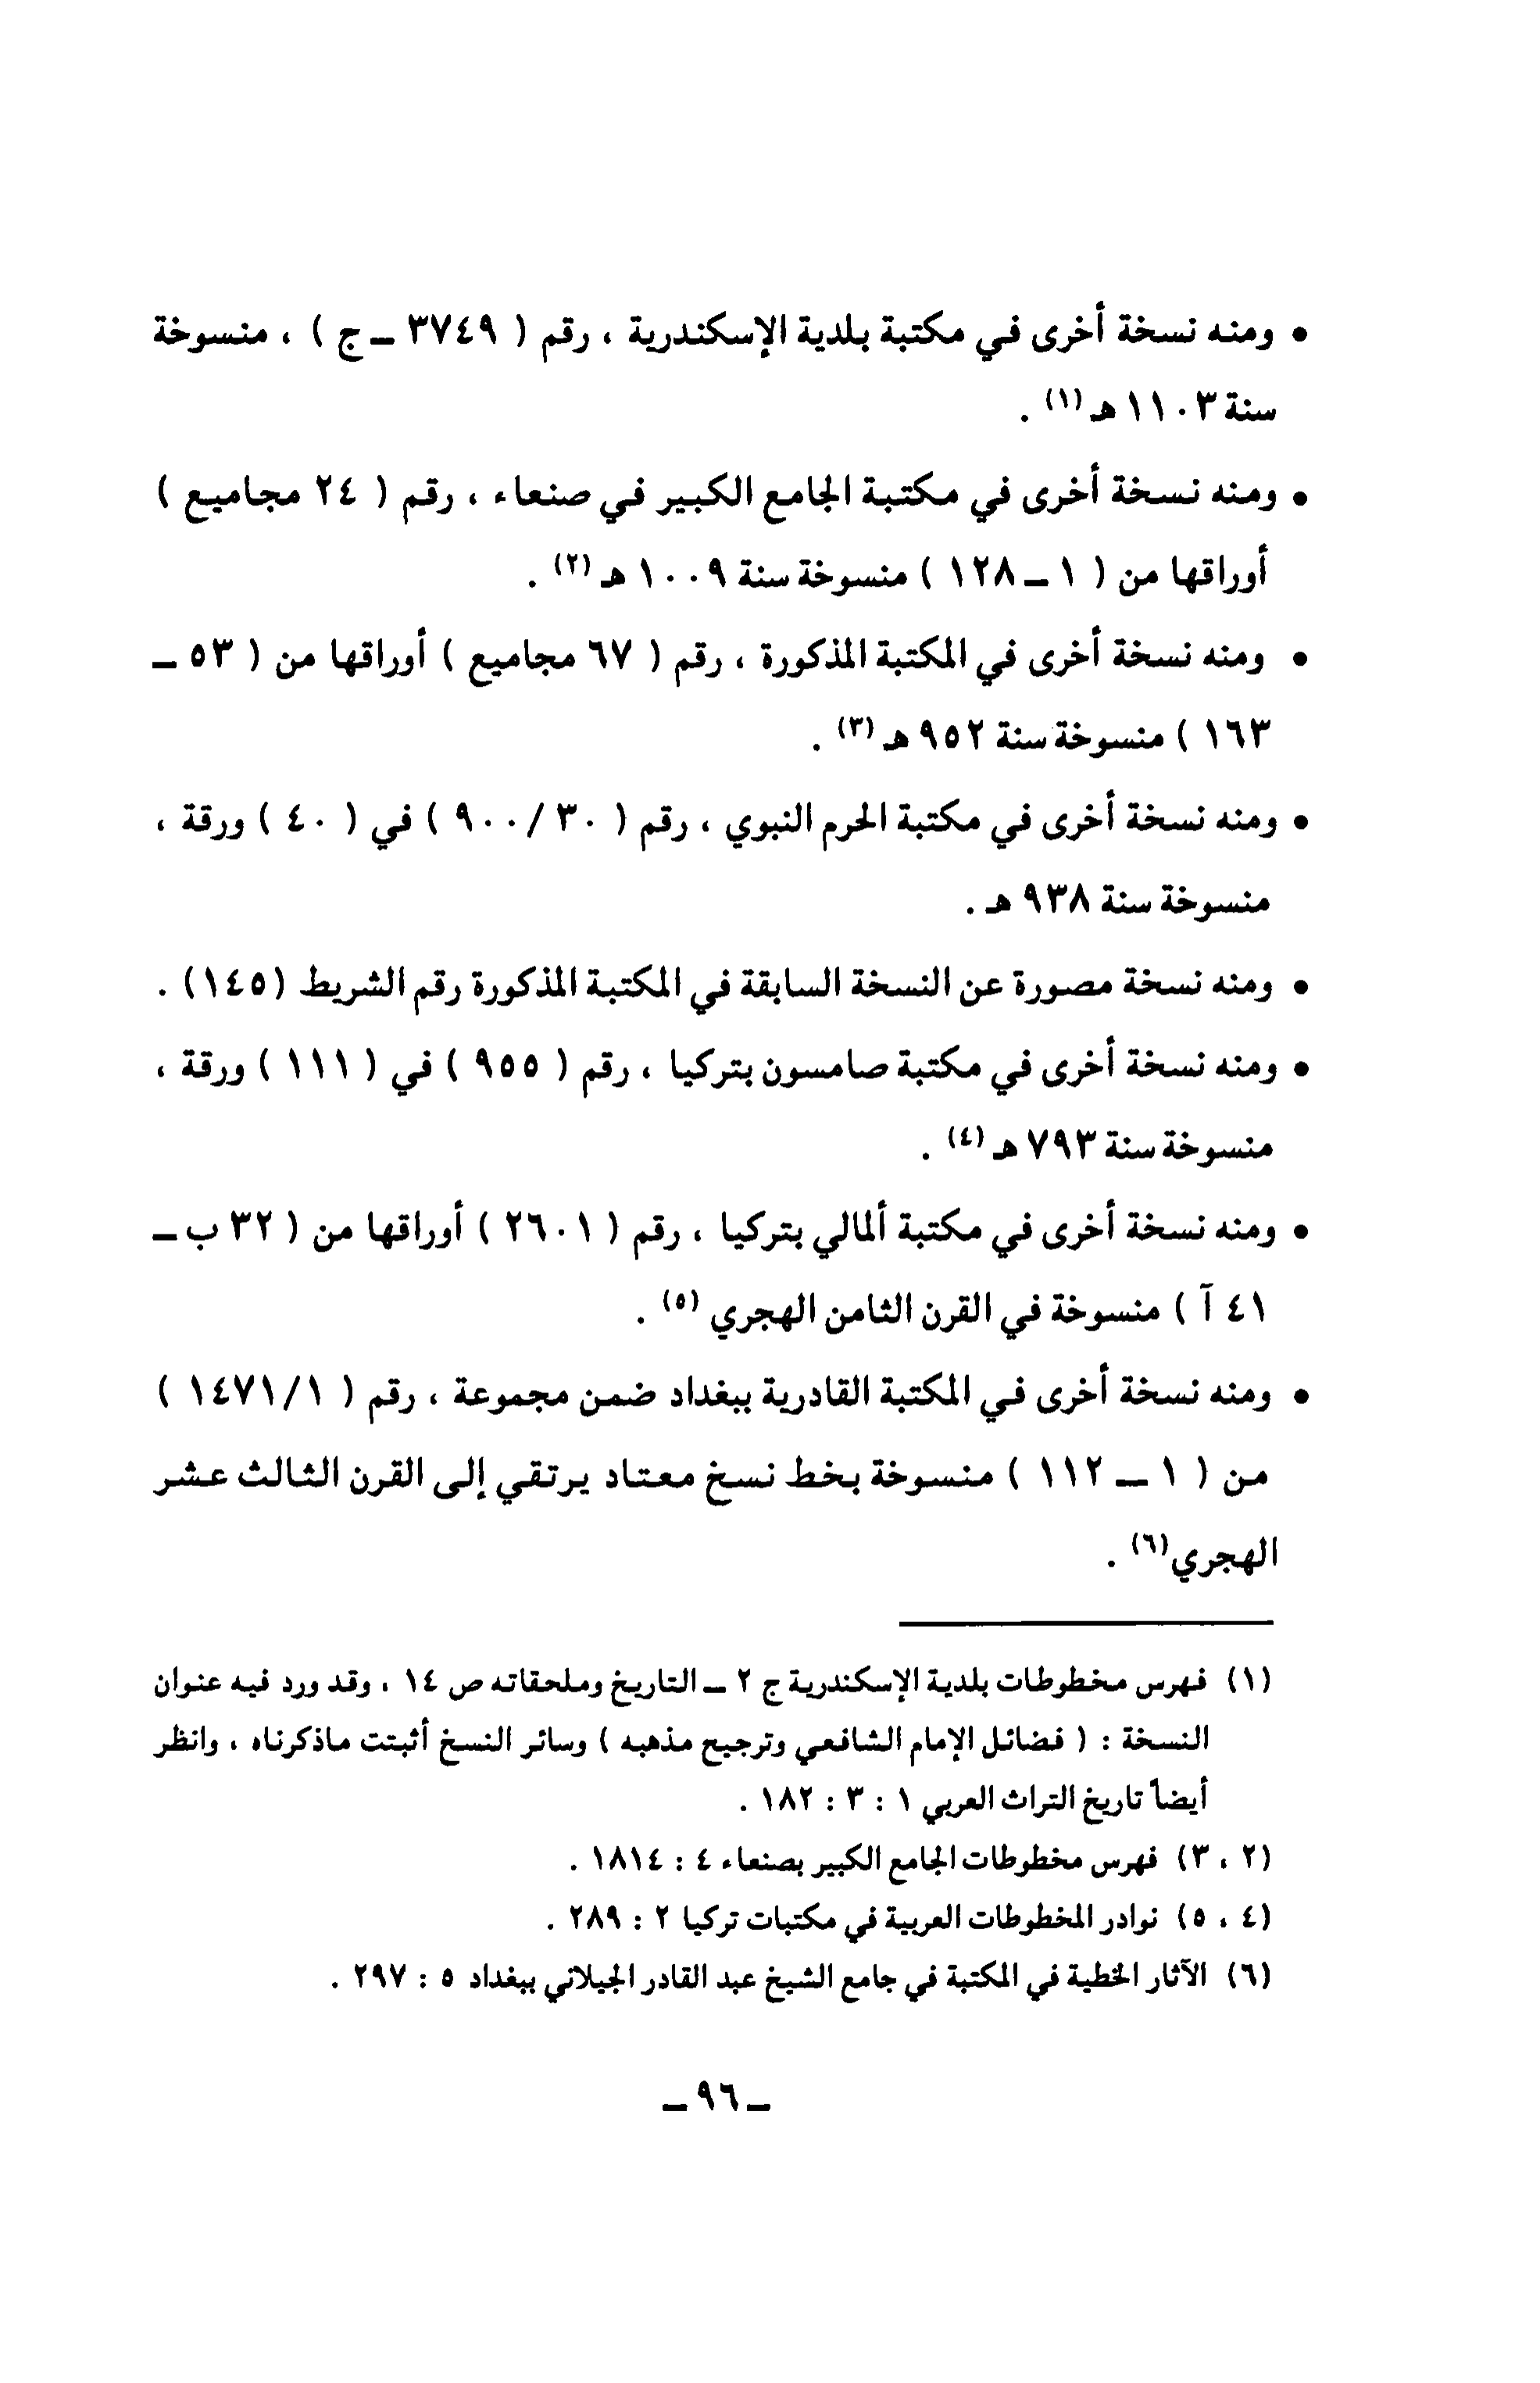 • ومنه نسخة أخرى في مكتبة بلدية الإسكندرية ، رقم ( ٣٧٤٩ ـ ج ) ، منسوخة
سنة ١١٠٣ هـ (١) .
• ومنه نسخة أخرى في مكتبة الجامع الكبير في صنعاء ، رقم ( ٢٤ مجاميع )
أوراقها من ( ١ ـ ١٢٨ ) منسوخة سنة ١٠٠٩ هـ (٢) .
• ومنه نسخة أخرى في المكتبة المذكورة ، رقم ( ٦٧ مجاميع ) أوراقها من ( ٥٣ ـ
١٦٣ ) منسوخة سنة ٩٥٢ هـ (٣) .
• ومنه نسخة أخرى في مكتبة الحرم النبوي ، رقم ( ٣٠ / ٩٠٠ ) في ( ٤٠ ) ورقة ،
منسوخة سنة ٩٣٨ هـ .
• ومنه نسخة مصورة عن النسخة السابقة في المكتبة المذكورة رقم الشريط (١٤٥) .
• ومنه نسخة أخرى في مكتبة صامسون بتركيا ، رقم ( ٩٥٥ ) في ( ١١١ ) ورقة ،
منسوخة سنة ٧٩٣ هـ (٤) .
• ومنه نسخة أخرى في مكتبة ألمالي بتركيا ، رقم ( ٢٦٠١ ) أوراقها من ( ٣٢ ب ـ
٤١ آ ) منسوخة في القرن الثامن الهجري (٥) .
• ومنه نسخة أخرى في المكتبة القادرية ببغداد ضمن مجموعة ، رقم ( ١٤٧١/١ )
من ( ١ ـ ١١٢ ) منسوخة بخط نسخ معتاد يرتقي إلى القرن الثالث عشر
الهجري(٦) .
(١) فهرس مخطوطات بلدية الإسكندرية ج ٢ ـ التاريخ وملحقاته ص ١٤ ، وقد ورد فيه عنوان
النسخة : ( فضائل الإمام الشافعي وترجيح مذهبه ) وسائر النسخ أثبتت ماذكرناه ، وانظر
أيضاً تاريخ التراث العربي ١ : ٣ : ١٨٢ .
(٢ ، ٣) فهرس مخطوطات الجامع الكبير بصنعاء ٤ : ١٨١٤ .
(٤ ، ٥) نوادر المخطوطات العربية في مكتبات تركيا ٢ : ٢٨٩ .
(٦) الآثار الخطية في المكتبة في جامع الشيخ عبد القادر الجيلاني ببغداد ٥ : ٢٩٧ .
ـ ٩٦ ـ